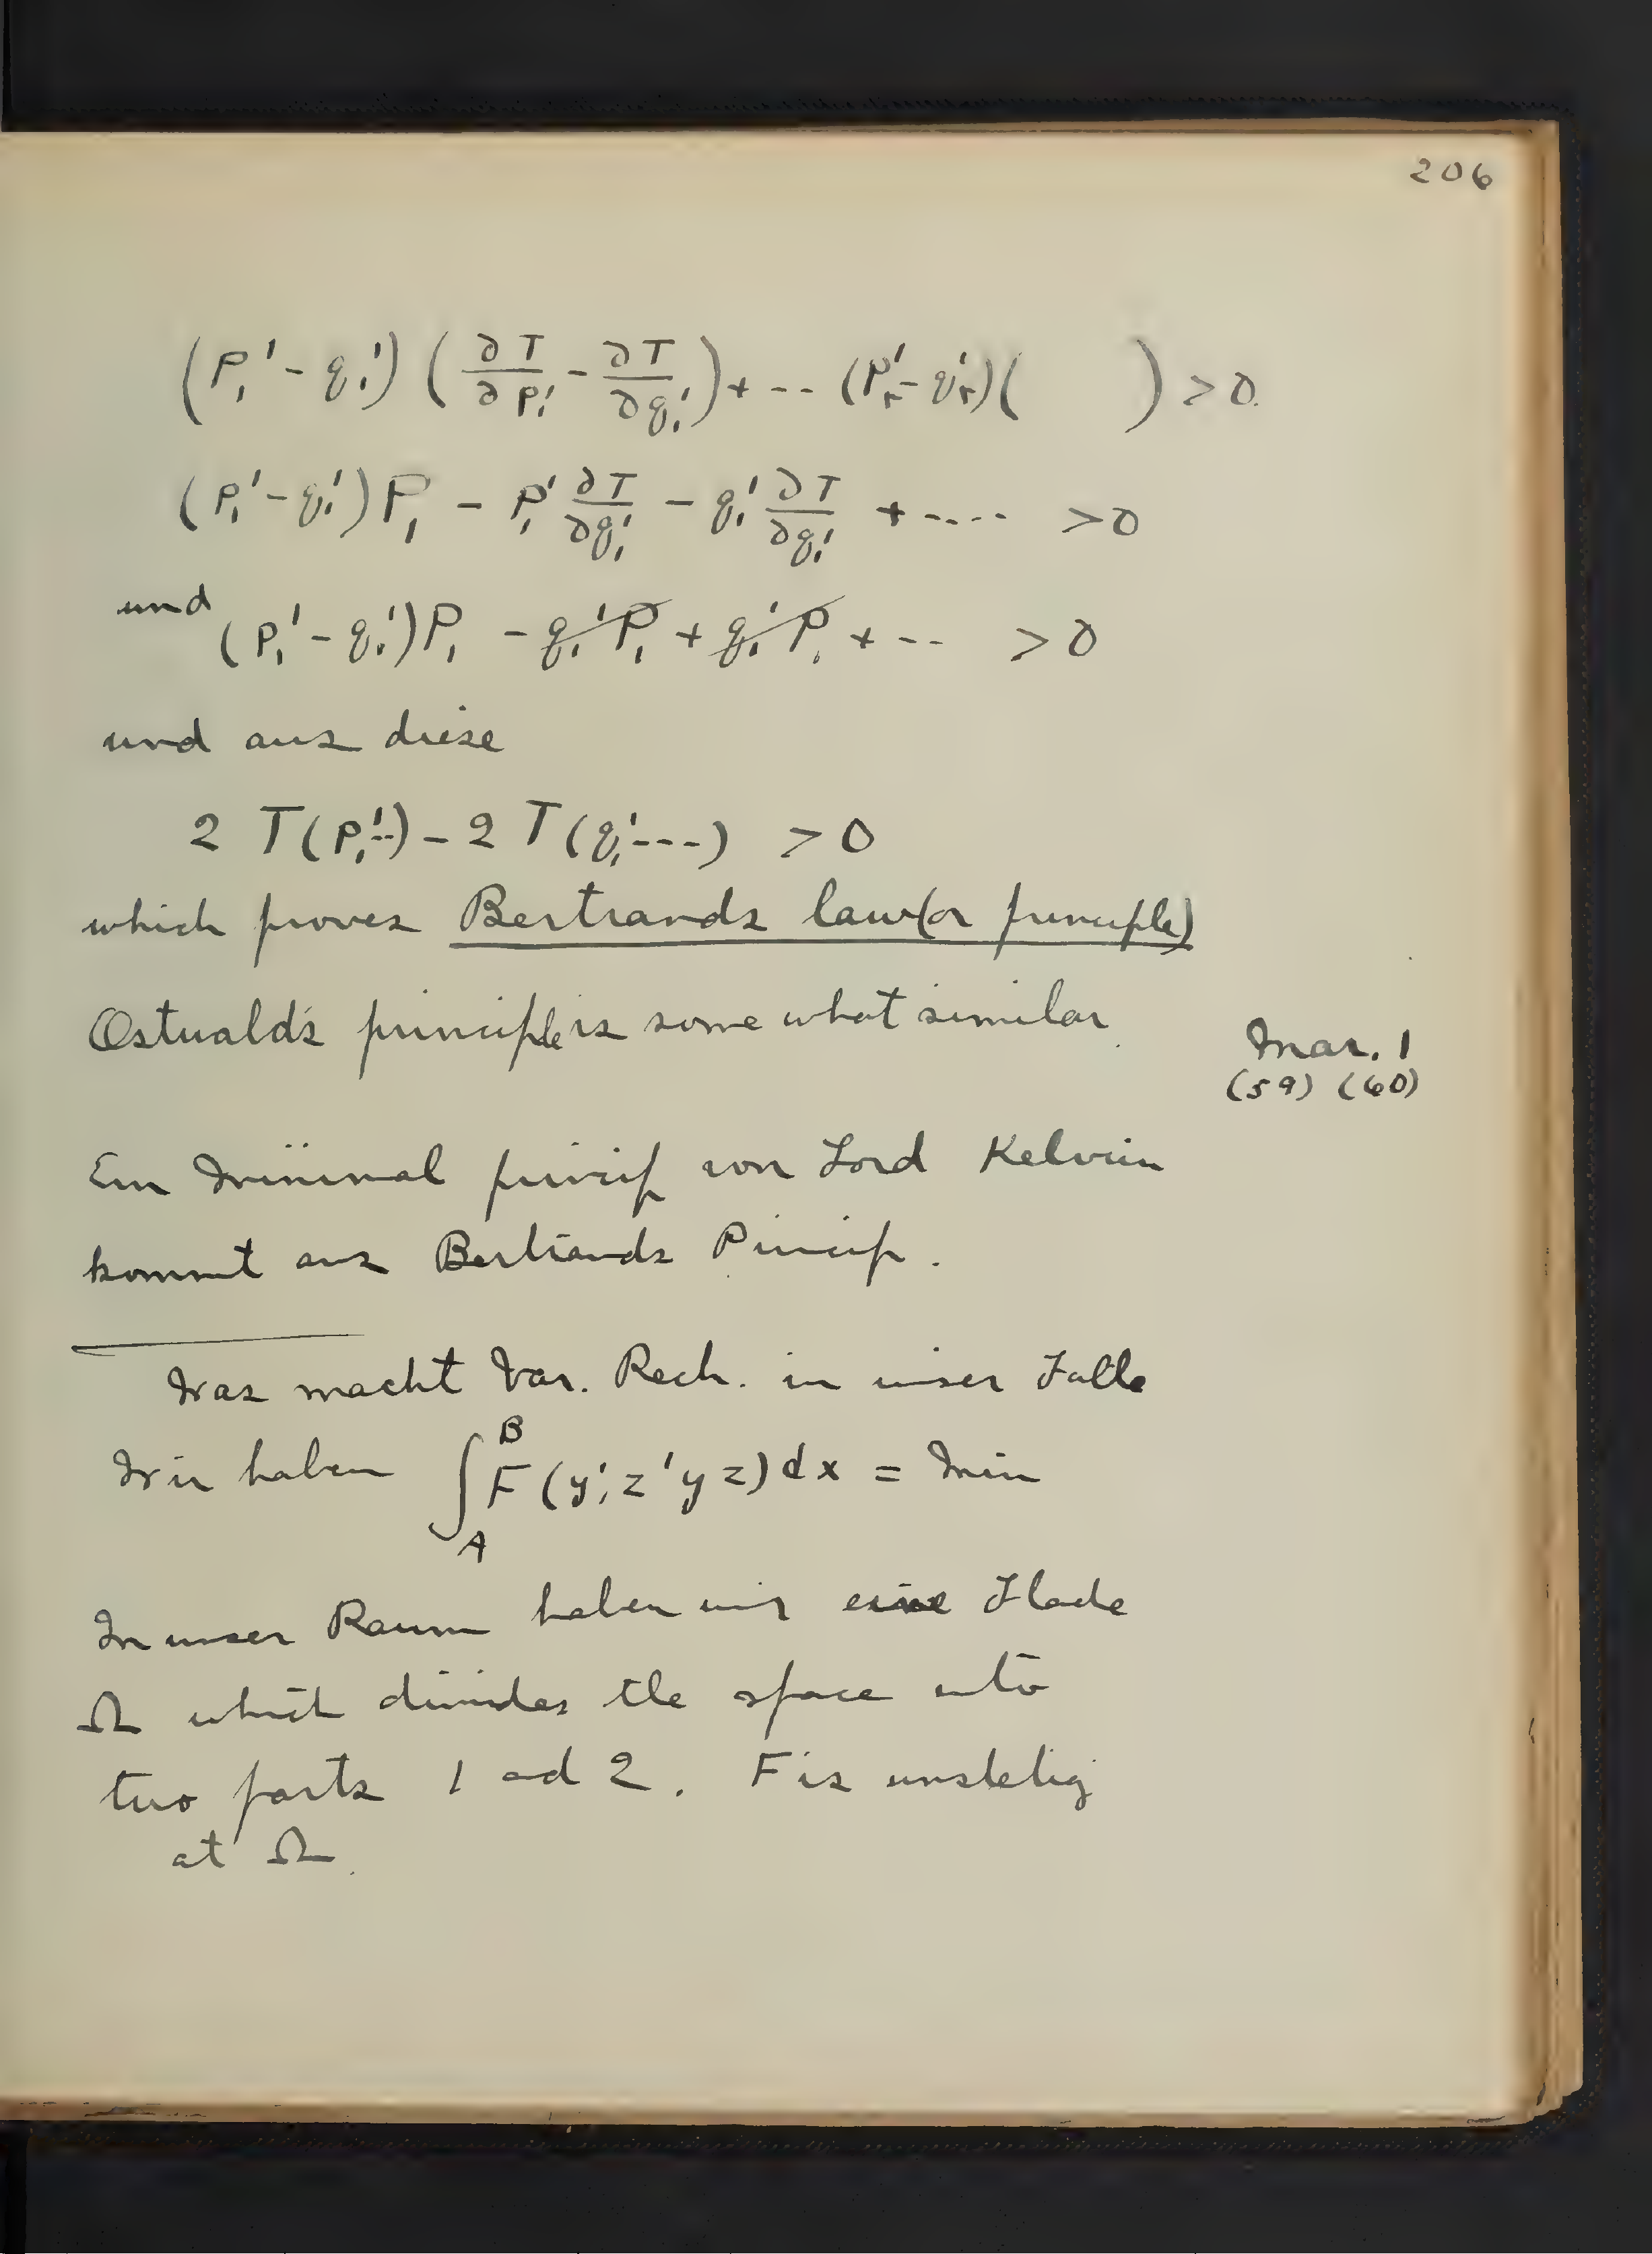 206
(p₁' - q₁') (∂T/∂p₁' - ∂T/∂q₁') + --- (p'ᵣ - q'ᵣ)(      ) > 0.
(p₁' - q₁')P₁ - p₁' ∂T/∂q₁' - q₁' ∂T/∂q₁' + ---- > 0
und (p₁' - q₁')P₁ - q₁'P₁ + q₁'P₁ + --- > 0
und aus diese
2 T(p₁'--) - 2 T(q₁'---) > 0
which proves Bertrands law (or principle)
Ostwald's principle is some what similar.
Mar. 1
(59) (60)
Ein Minimal princip von Lord Kelvin
kommt aus Bertrands Princip.
Was macht Var. Rech. in unser Falle
Wir haben ∫_A^B F(y', z' y z) dx = Min
In unser Raum haben wir eine Flache
Ω which divides the space into
two parts 1 and 2. F is unstetig
at Ω.